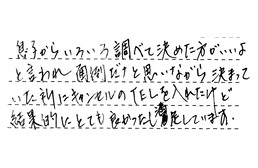 息子からいろいろ調べて決めた方がいいよ
と言われ面倒だなと思いながら決まって
いた所にキャンセルのTELを入れたけど
結果的にとても良かったし満足しています.